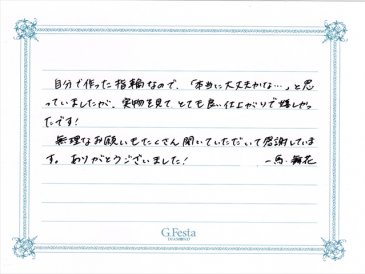 自分で作った指輪なので、「本当に大丈夫かな…」と思
っていましたが、実物を見て とても良い仕上がりで嬉しかっ
たです!
無理なお願いもたくさん聞いていただいて感謝していま
す。ありがとうございました!
一馬・舞花
G.Festa
DIAMOND